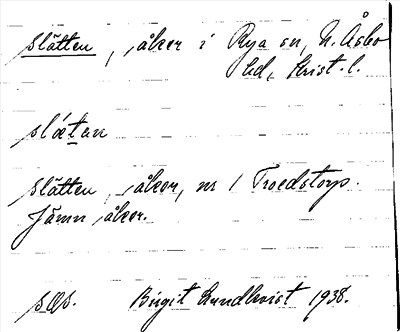 slätten, åker i Rya sn, N. Åsbo
hd, Krist. l.
slǽtan
slätten, åker, nr 1 Troedstorp.
Jämn åker.
sOs. Birgit Lundkvist 1938.